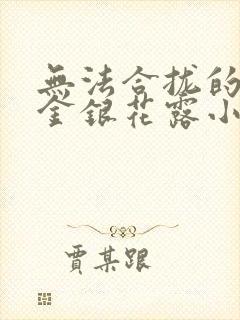 無法合拢的
金銀花露小
贾某跟